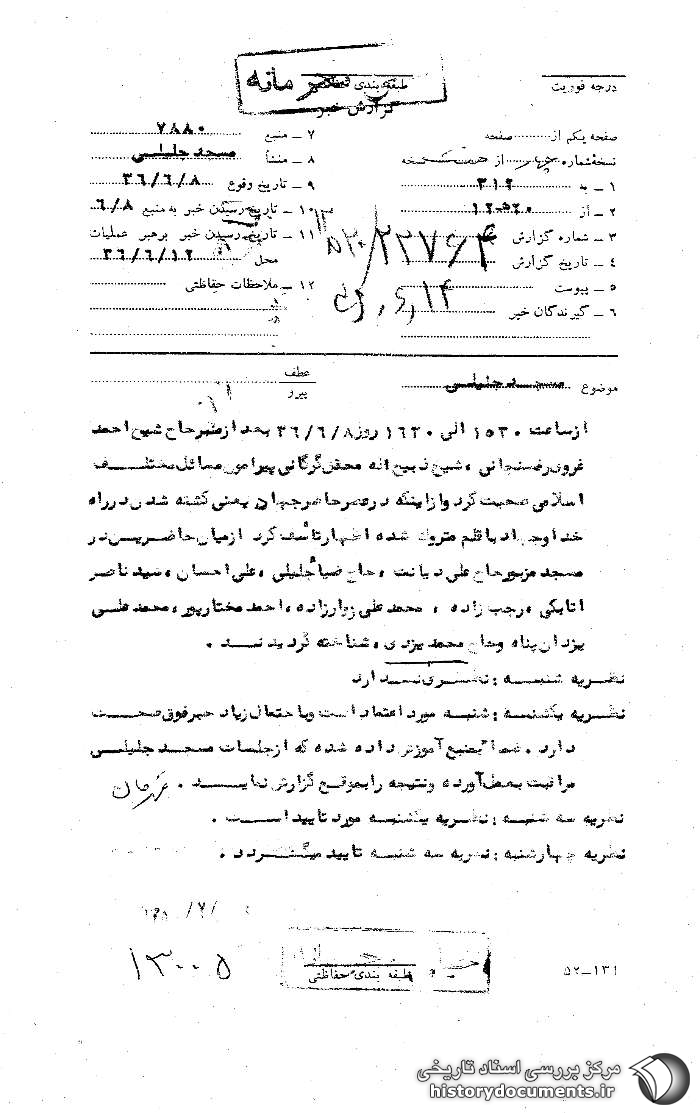 درجه فوریت
طبقه بندی حفاظتی
محرمانه
گزارش خبر
صفحه یکم از صفحه
نسخه شماره چهار از هشت نسخه
۱ ـ به ۳۱۲
۲ ـ از ۱۲۵۲۰
۳ ـ شماره گزارش
۴ ـ تاریخ گزارش
۵ ـ پیوست
۶ ـ گیرندگان خبر
۷ ـ منبع ۷۸۸۰
۸ ـ منشأ مسجد جلیلی
۹ ـ تاریخ وقوع ۳۶/۶/۸
۱۰ ـ تاریخ رسیدن خبر به منبع ۶/۸
۱۱ ـ تاریخ رسیدن خبر برهبر عملیات
محل ۳۶/۶/۱۲
۱۲ ـ ملاحظات حفاظتی
موضوع مسجد جلیلی
عطف
پیرو
ازساعت ۱۵۳۰ الی ۱۶۳۰ روز ۳۶/۶/۸ بعد ازظهر حاج شیخ احمد
غروی رفسنجانی ، شیخ ذبیح اله محقق گرگانی پیرامون مسائل مختلف
اسلامی صحبت کرد وازاینکه درعصر حاضر جهان یعنی کشته شدن درراه
خدا وجهاد باقلم متروک شده اظهارتأسف کرد ازمیان حاضرین در
مسجد مزبور حاج علی دیانت ، حاج ضیاء جلیلی ، علی احسان ، سید ناصر
اتابکی ، رجب زاده ، محمد علی زوارزاده ، احمد مختارپور ، محمد علی
یزدان پناه وحاج محمد یزدی ، شناخته گردیدند .
نظریه شنبه : نظری ندارد
نظریه یکشنبه : شنبه مورد اعتماد است وباحتمال زیاد خبرفوق صحت
دارد . ضمنا بمنبع آموزش داده شده که ازجلسات مسجد جلیلی
مراقبت بعمل آورده ونتیجه رابموقع گزارش نماید .
نظریه سه شنبه : نظریه یکشنبه مورد تایید است .
نظریه چهارشنبه : نظریه سه شنبه تایید میگردد .
۱۳۰۰۵
طبقه بندی حفاظتی
۵۲ـ۱۳۱
مرکز بررسی اسناد تاریخی
historydocuments.ir